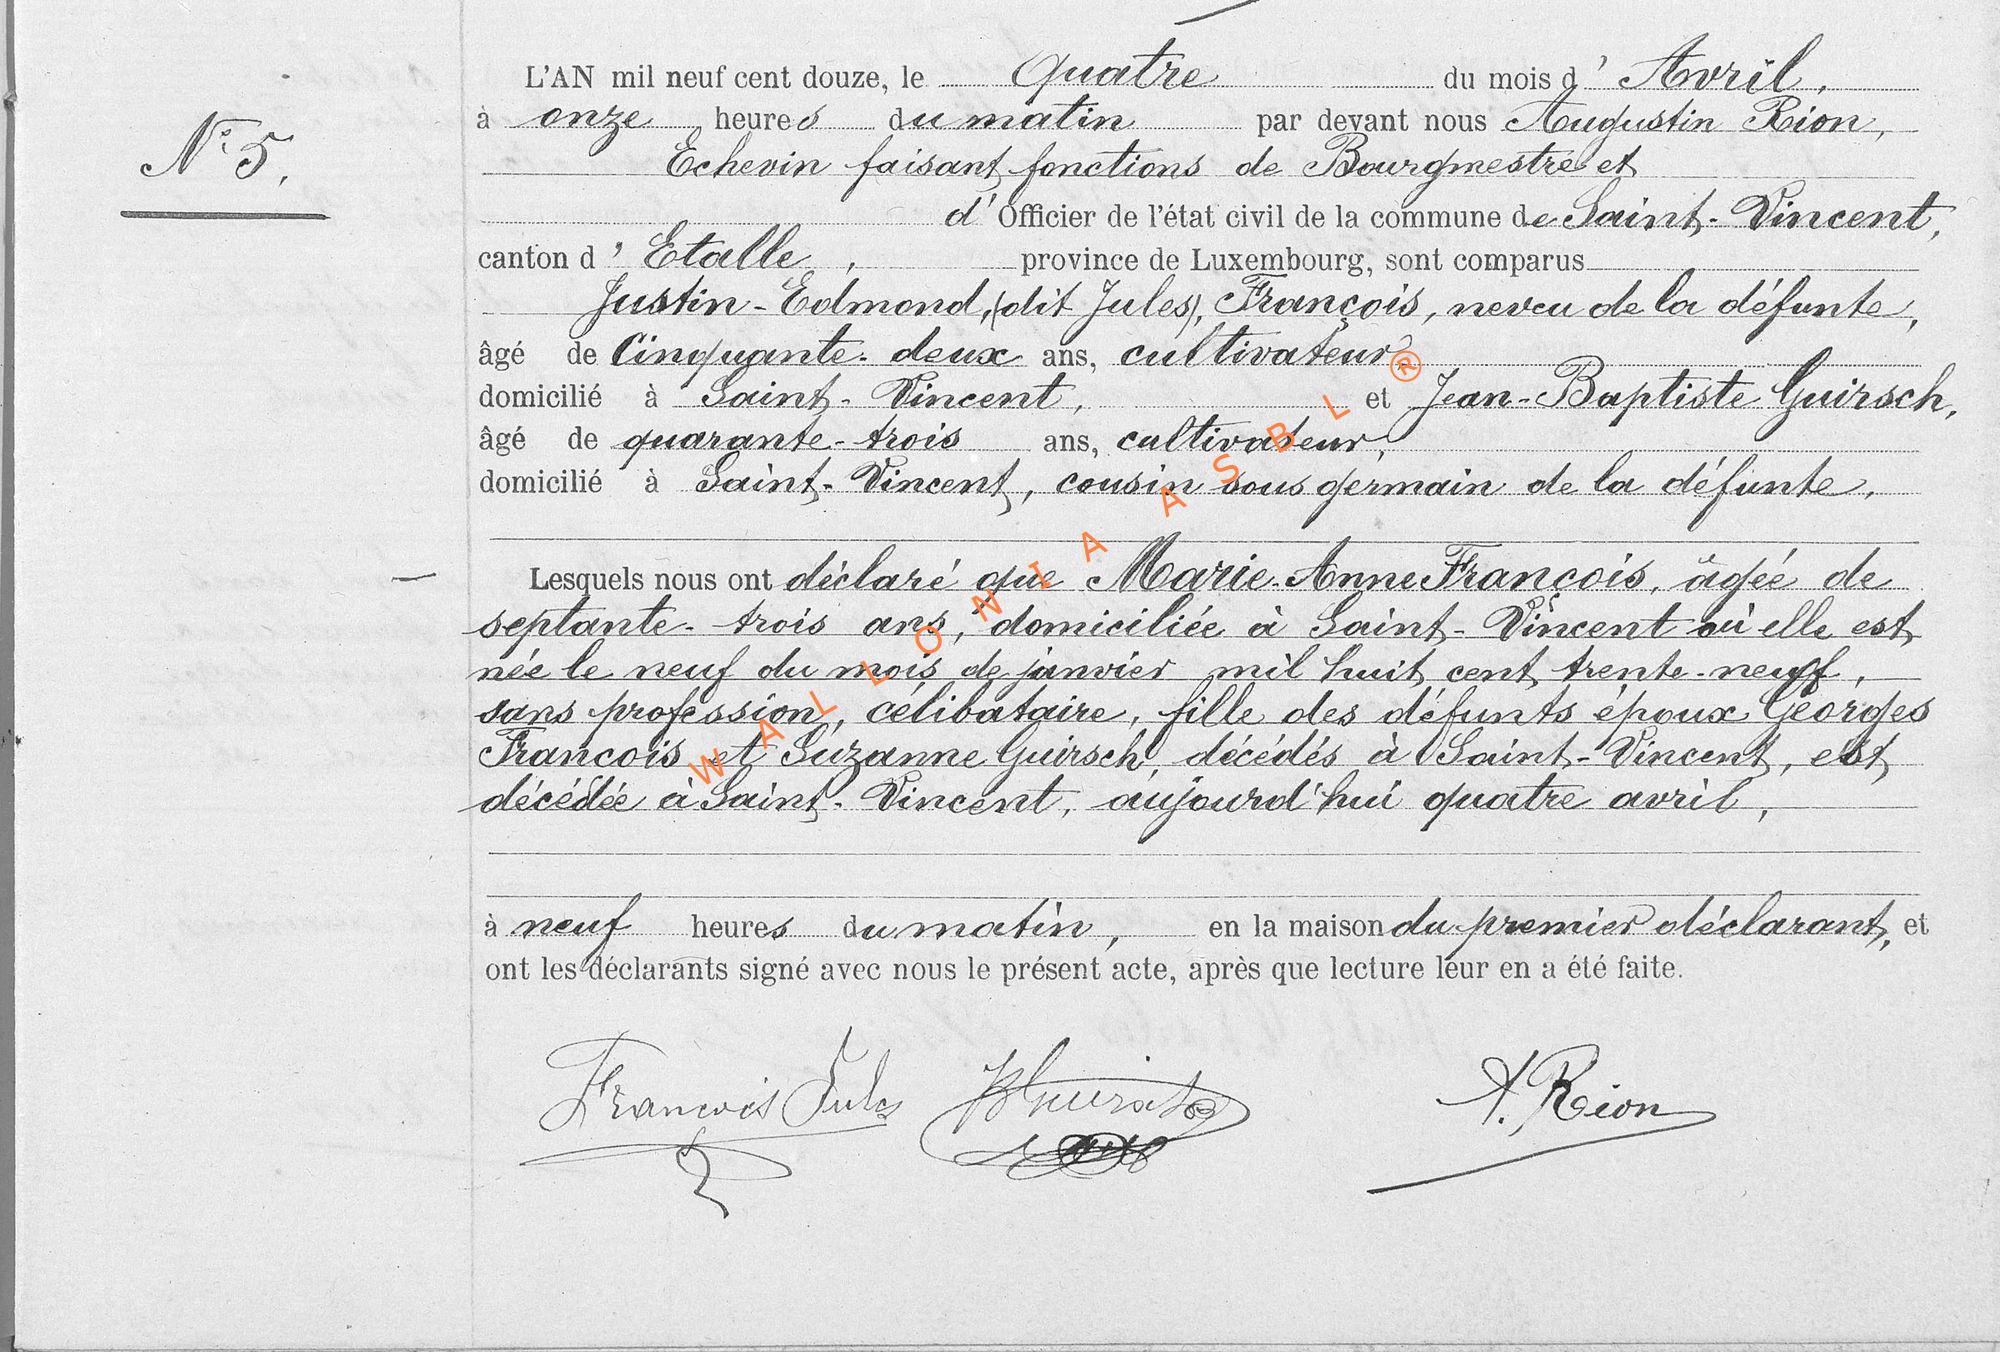 L'AN mil neuf cent douze, le quatre du mois d' Avril,
N° 5.
à onze heures du matin par devant nous Augustin Rion,
Echevin faisant fonctions de Bourgmestre et
d' Officier de l'état civil de la commune de Saint-Vincent,
canton d' Etalle, province de Luxembourg, sont comparus
Justin-Edmond, (dit Jules), François, neveu de la défunte,
âgé de Cinquante-deux ans, cultivateur
domicilié à Saint-Vincent, et Jean-Baptiste Guirsch,
âgé de quarante-trois ans, cultivateur,
domicilié à Saint-Vincent, cousin sous germain de la défunte,
Lesquels nous ont déclaré que Marie-Anne François, âgée de
septante-trois ans, domiciliée à Saint-Vincent où elle est
née le neuf du mois de janvier mil huit cent trente-neuf,
sans profession, célibataire, fille des défunts époux Georges
François et Suzanne Guirsch, décédés à Saint-Vincent, est
décédée à Saint-Vincent, aujourd'hui quatre avril,
à neuf heures du matin, en la maison du premier déclarant, et
ont les déclarants signé avec nous le présent acte, après que lecture leur en a été faite.
François Jules JB Guirsch A. Rion
WALLONIA ASBL ®